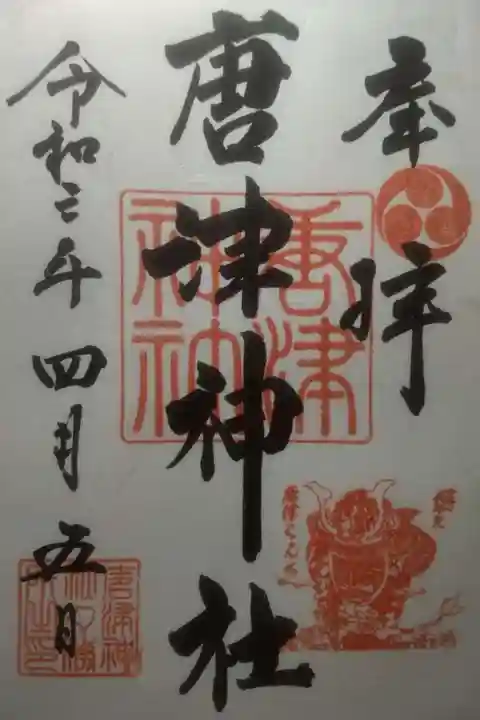 奉拝
唐津神社
令和二年四月五日
唐津
神社
唐津くんち